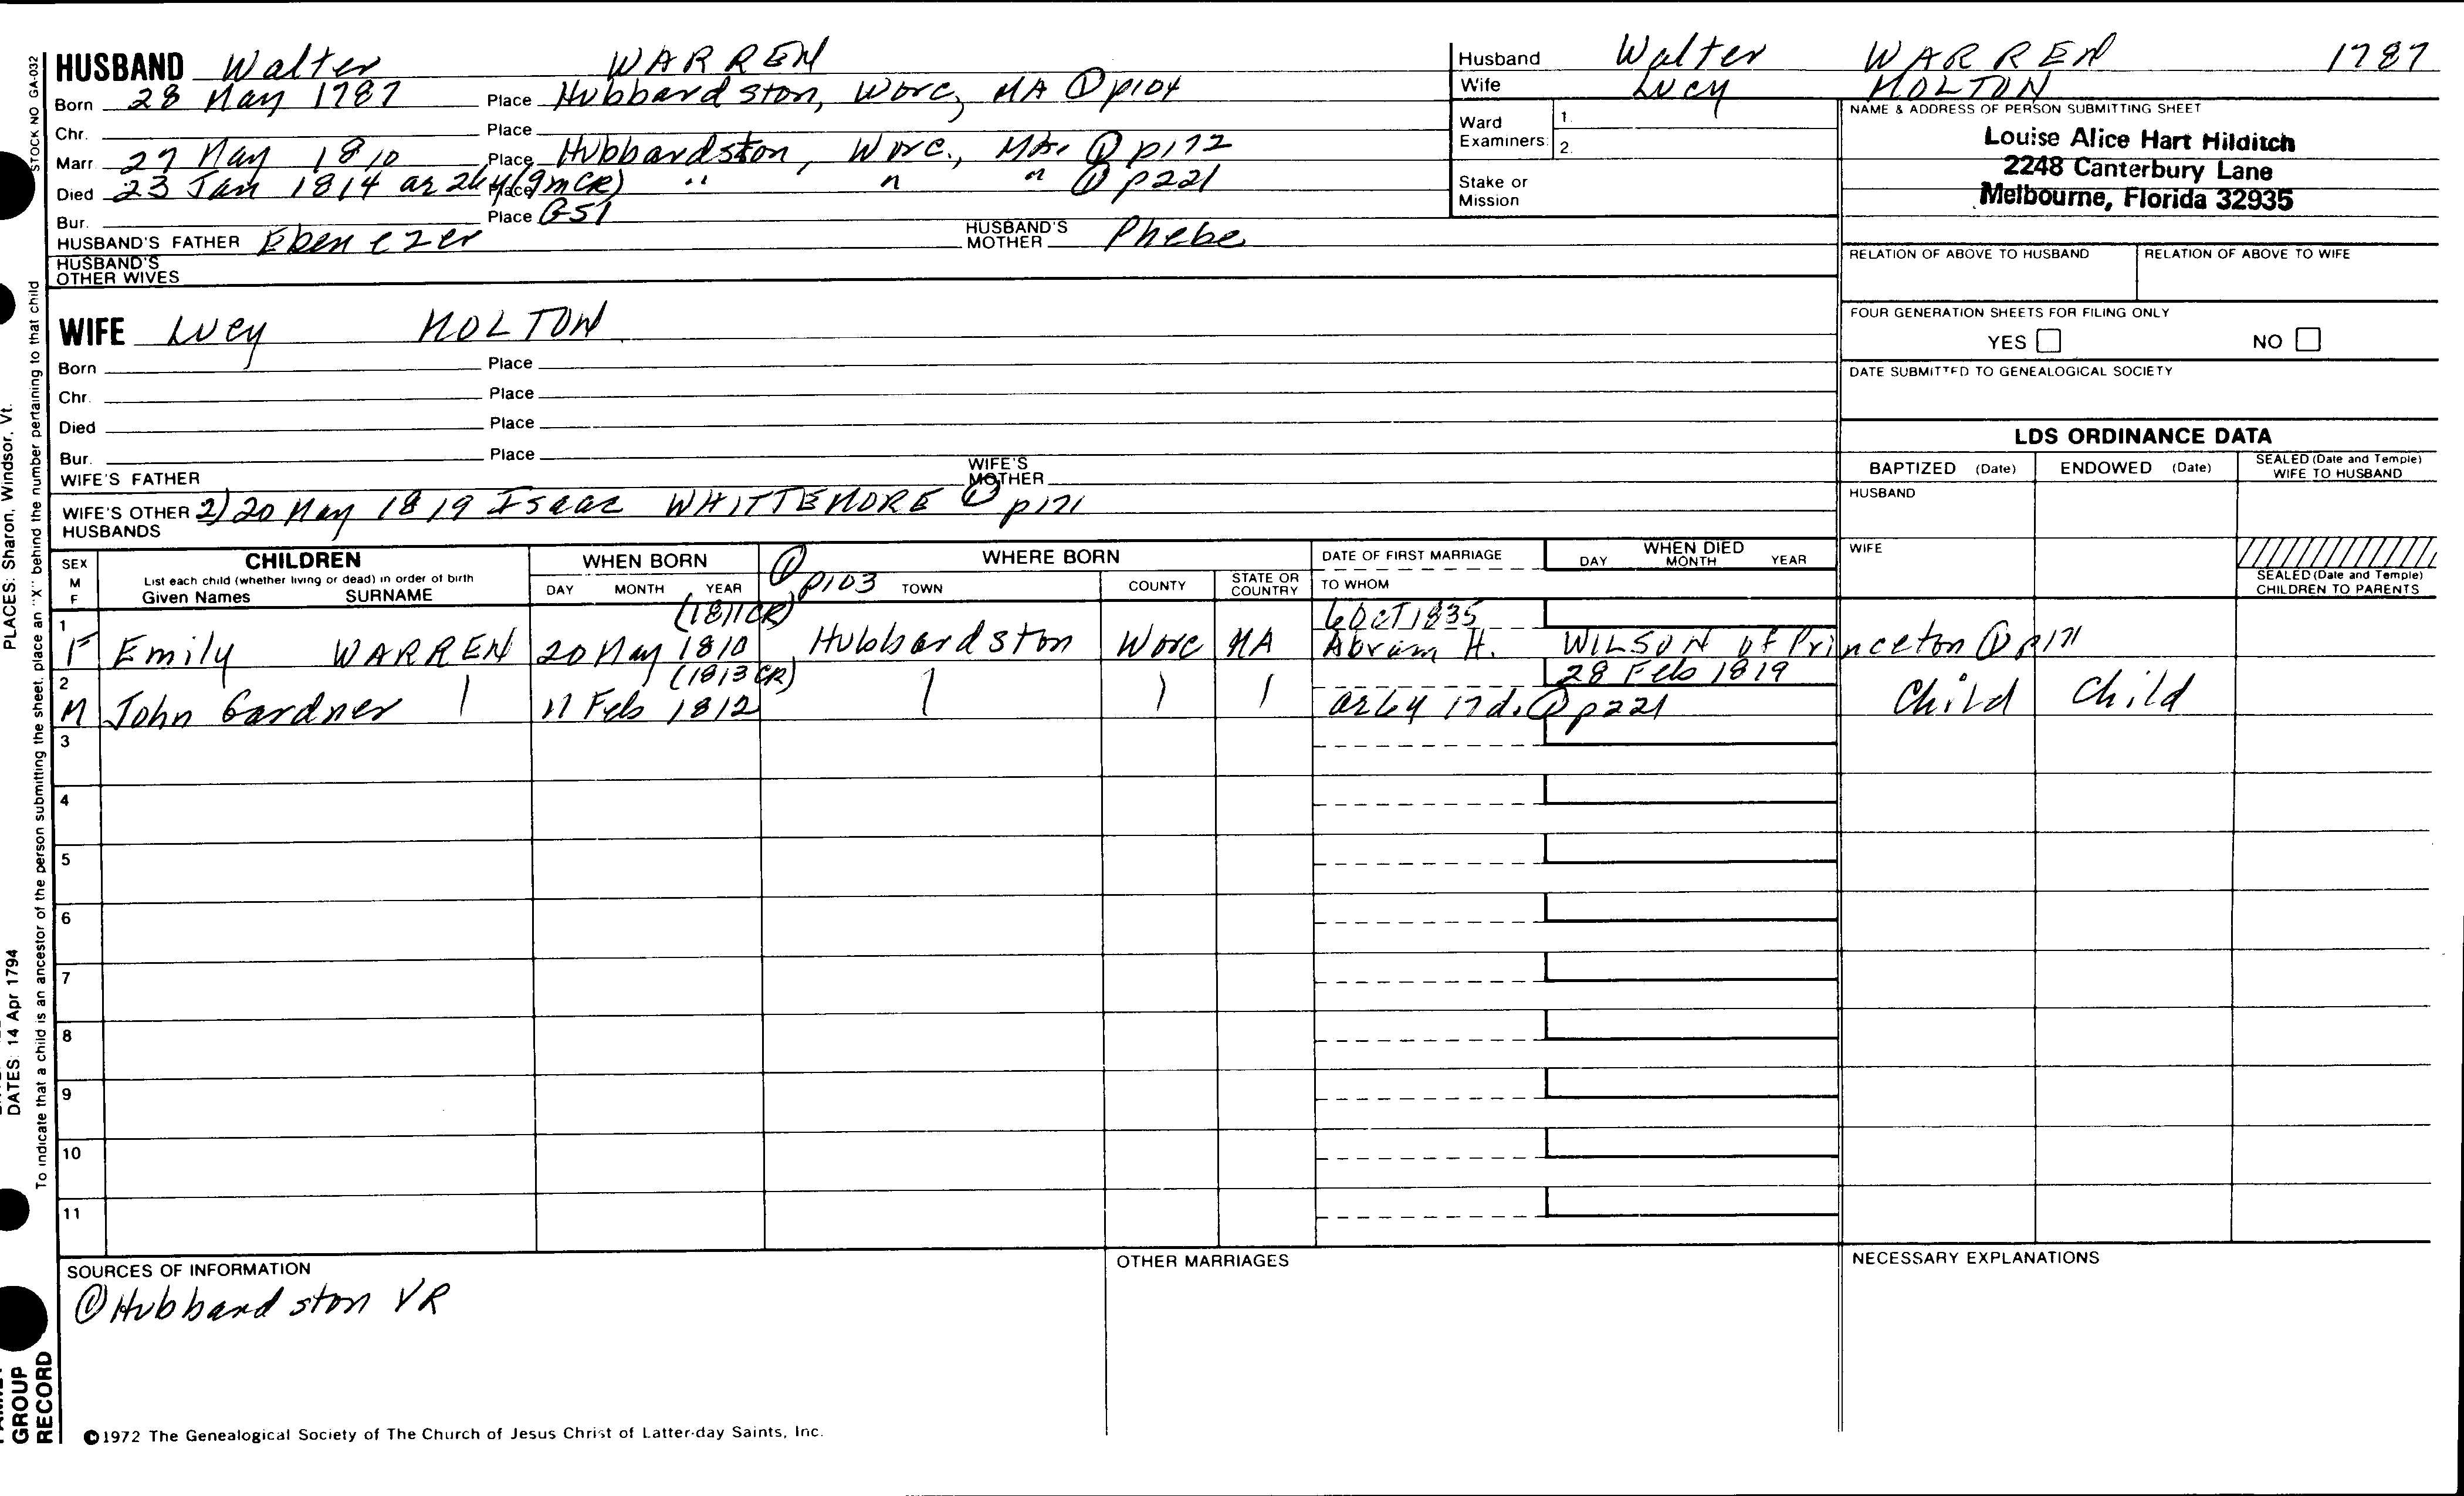 STOCK NO GA-032
HUSBAND Walter WARREN
Born 28 May 1787 Place Hubbardston, Worc, MA ① p104
Chr. Place
Marr 27 May 1810 Place Hubbardston, Worc., MA. ① p172
Died 23 Jan 1814 ae 26y (9m CR) Place " " " ① p221
Bur. Place G51
HUSBAND'S FATHER Ebenezer HUSBAND'S MOTHER Phebe
HUSBAND'S OTHER WIVES
Husband Walter WARREN 1787
Wife Lucy HOLTON
Ward Examiners: 1. 2.
Stake or Mission
NAME & ADDRESS OF PERSON SUBMITTING SHEET
Louise Alice Hart Hilditch
2248 Canterbury Lane
Melbourne, Florida 32935
RELATION OF ABOVE TO HUSBAND RELATION OF ABOVE TO WIFE
FOUR GENERATION SHEETS FOR FILING ONLY
YES NO
DATE SUBMITTED TO GENEALOGICAL SOCIETY
WIFE Lucy HOLTON
Born Place
Chr. Place
Died Place
Bur. Place
WIFE'S FATHER WIFE'S MOTHER
WIFE'S OTHER HUSBANDS 2) 20 May 1819 Isaac WHITTEMORE ① p171
LDS ORDINANCE DATA
BAPTIZED (Date) ENDOWED (Date) SEALED (Date and Temple) WIFE TO HUSBAND
HUSBAND
WIFE
SEALED (Date and Temple) CHILDREN TO PARENTS
SEX M F
CHILDREN
List each child (whether living or dead) in order of birth
Given Names SURNAME
WHEN BORN
DAY MONTH YEAR
WHERE BORN
① p103 TOWN COUNTY STATE OR COUNTRY
DATE OF FIRST MARRIAGE
TO WHOM
WHEN DIED
DAY MONTH YEAR
1 (1811CR) 6 OCT 1835
F Emily WARREN 20 May 1810 Hubbardston Worc MA Abram H. WILSON of Princeton ① p171
2 (1813 CR) 28 Feb 1819
M John Gardner 11 Feb 1812 ae 6y 17d. ① p221 Child Child
3
4
5
6
7
8
9
10
11
SOURCES OF INFORMATION
① Hubbardston VR
OTHER MARRIAGES
NECESSARY EXPLANATIONS
©1972 The Genealogical Society of The Church of Jesus Christ of Latter-day Saints, Inc.
PLACES: Sharon, Windsor, Vt.
DATES: 14 Apr 1794
To indicate that a child is an ancestor of the person submitting the sheet, place an "X" behind the number pertaining to that child
GROUP
RECORD